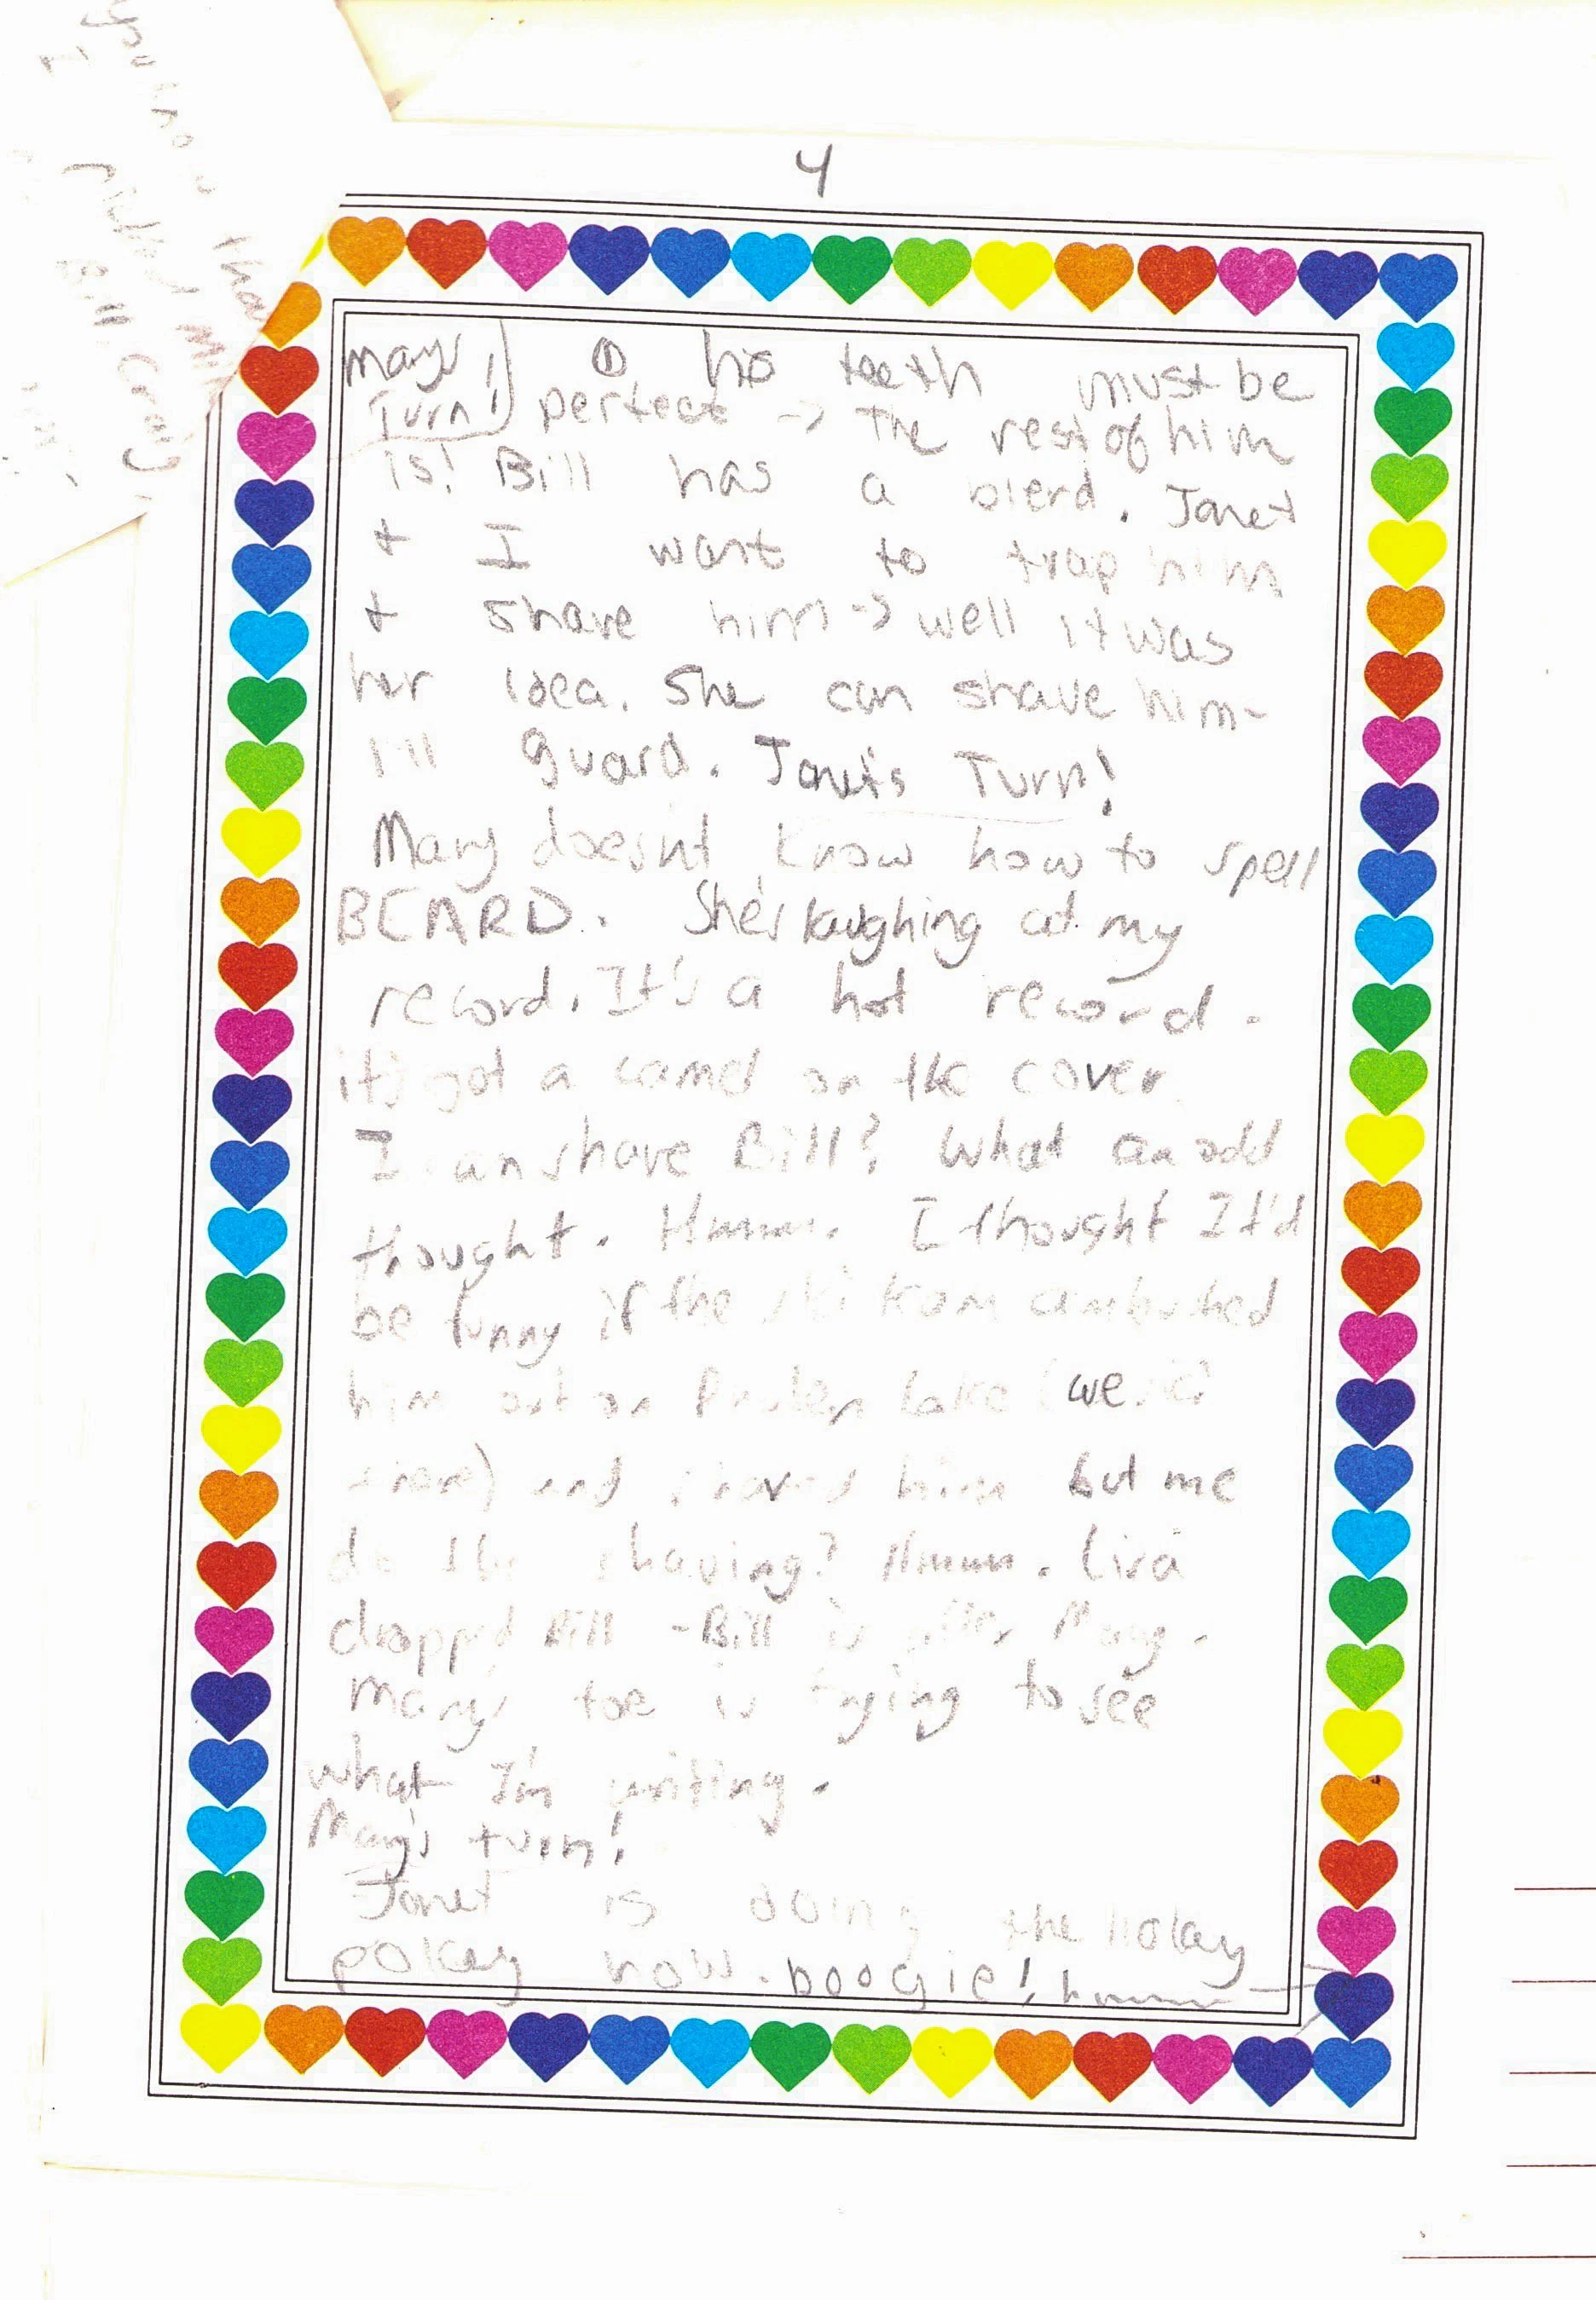 4
Mary's O his teeth must be
Turn! perfect -> The rest of him
is! Bill has a bierd. Janet
+ I want to trap him
+ shave him -> well it was
her idea. She can shave him-
I'll guard. Janet's Turn!
Mary doesn't know how to spell
BEARD. She's laughing at my
record. It's a hot record.
it's got a camel on the cover
I can shave Bill? What an odd
thought. Hmmm. I thought It'd
be funny if the ski team ambushed
him out on lake (we ski
there) and shaved him but me
do the shaving? Hmmm. Lisa
dropped Bill - Bill is after Mary.
Mary's toe is trying to see
what I'm writing.
Mary's turn!
Janet is doing the hokay
pokay now. boogie! hmmm
you know that
I
Bill Craig